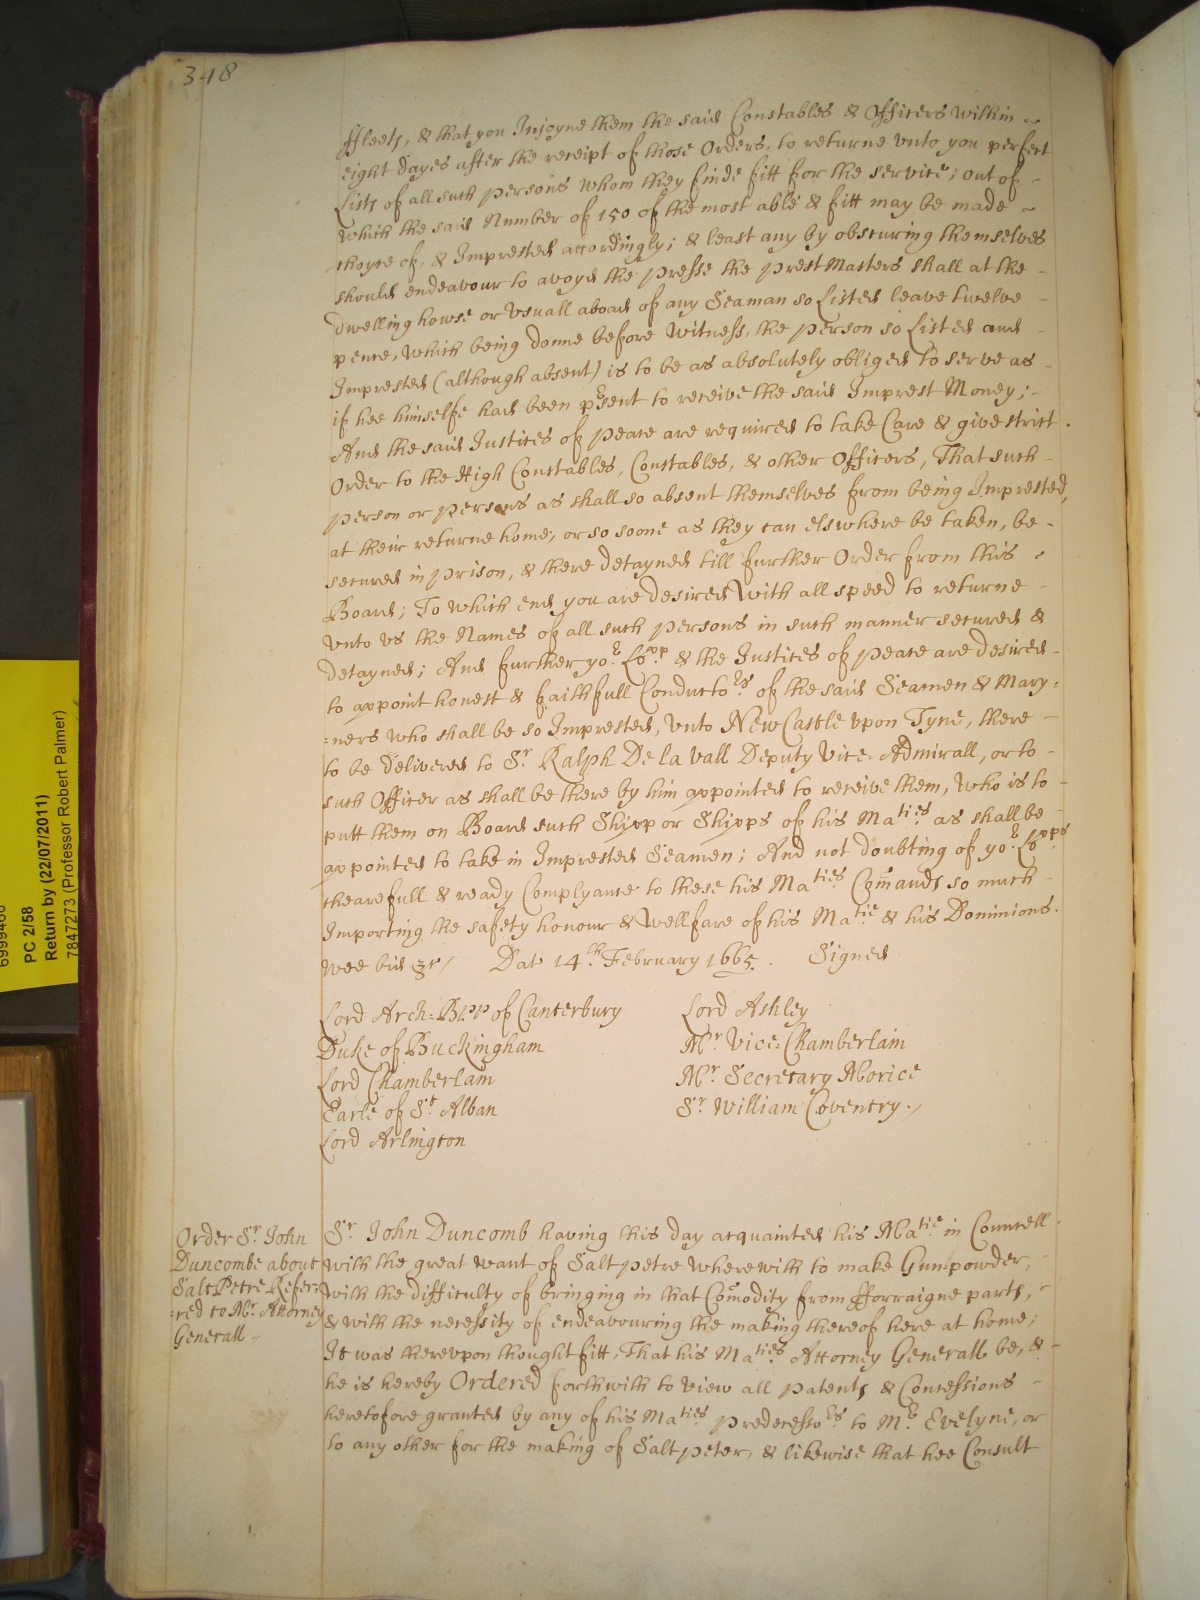 348
ffleets, & that you Injoyne them the said Constables & Officers within
eight dayes after the receipt of those Orders, to returne vnto you perfect
Lists of all such persons whom they finde fitt for the service; out of
which the said Number of 150 of the most able & fitt may be made
choyce of, & Imprested accordingly; & least any by obscuring themselves
should endeavour to avoyd the presse the prest Masters shall at the
dwelling howse or vsuall aboad of any Seaman so Listed leave twelve
pence, which being donne before witness, the person so Listed and
Imprested (although absent) is to be as absolutely obliged to serve as
if hee himselfe had been pr̃sent to receive the said Imprest Money;
And the said Justices of peace are required to take Care & give strict
Order to the High Constables, Constables, & other Officers, That such
person or persons as shall so absent themselves from being Imprested,
at their returne home, or so soone as they can elswhere be taken, be
secured in prison, & there detayned till further Order from this
Board; To which end you are desired with all speed to returne
vnto vs the Names of all such persons in such manner secured &
detayned; And further yor. Lopp. & the Justices of peace are desired
to appoint honest & faithfull Conductors of the said Seamen & Mary=
=ners who shall be so Imprested, vnto New Castle vpon Tyne, there
to be delivered to Sr. Ralph De la vall Deputy Vice Admirall, or to
such Officer as shall be there by him appointed to receive them, who is to
putt them on Board such Shipp or Shipps of his Maties. as shall be
appointed to take in Imprested Seamen; And not doubting of yor. Lopps
chearefull & ready Complyance to these his Maties Com̃ands so much
Importing the safety honour & Wellfare of his Matie & his Dominions.
Wee bid &c/ Dat 14th February 1665. Signed
Lord Arch=Bpp of Canterbury
Duke of Buckingham
Lord Chamberlain
Earle of St. Alban
Lord Arlington
Lord Ashley
Mr. Vice=Chamberlain
Mr. Secretary Morice
Sr. William Coventry./
Order Sr. John
Duncombe about
Salt Petre Refer=
=red to Mr. Attorney
Generall
Sr. John Duncomb having this day acquainted his Matie in Councell
with the great want of Salt petre wherewith to make Gunpowder,
with the difficulty of bringing in that Com̃odity from fforraigne parts,
& with the necessity of endeavouring the making thereof here at home;
It was therevpon thought fitt, That his Maties. Attorney Generall be, &
he is hereby Ordered forthwith to view all patents & Concessions
heretofore granted by any of his Maties predecessors to Mr. Evelyne, or
to any other for the making of Salt peter, & likewise that hee Consult
PC 2/58
Return by (22/07/2011)
7847273 (Professor Robert Palmer)